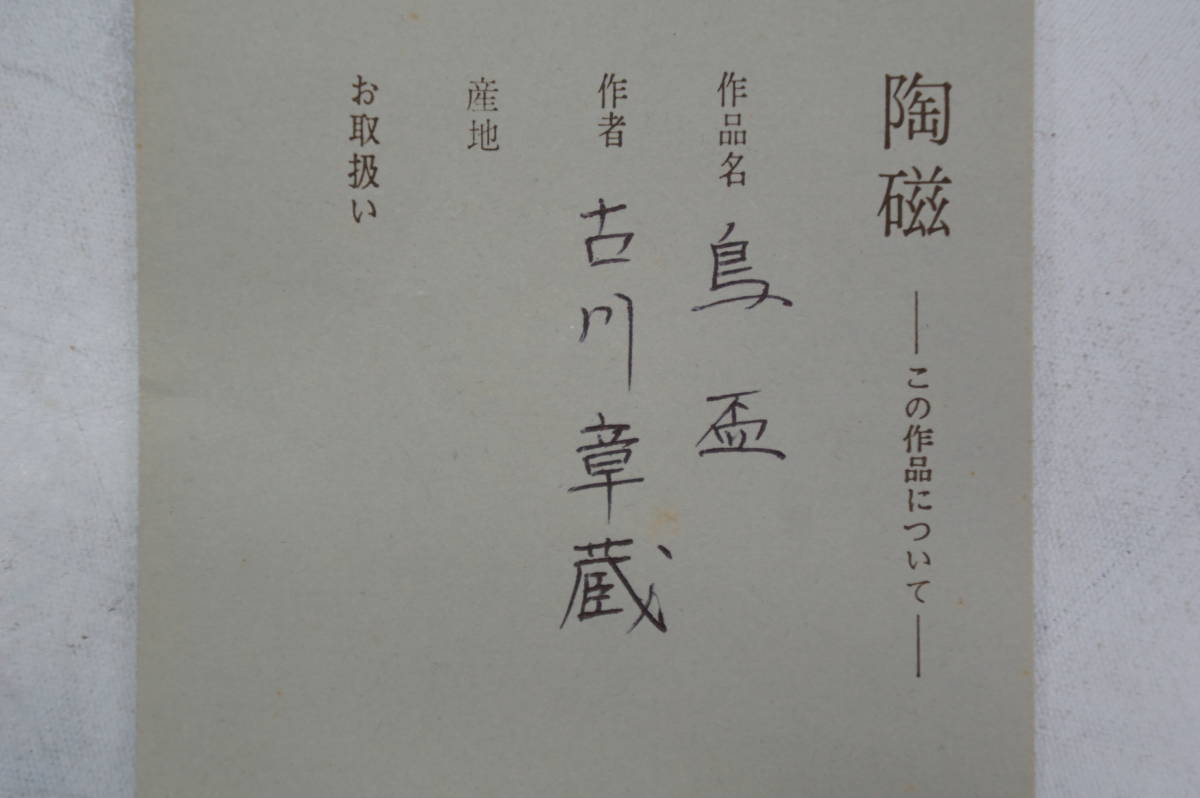 陶磁 ―この作品について―
作品名 鳥盃
作者 古川章蔵
産地
お取扱い